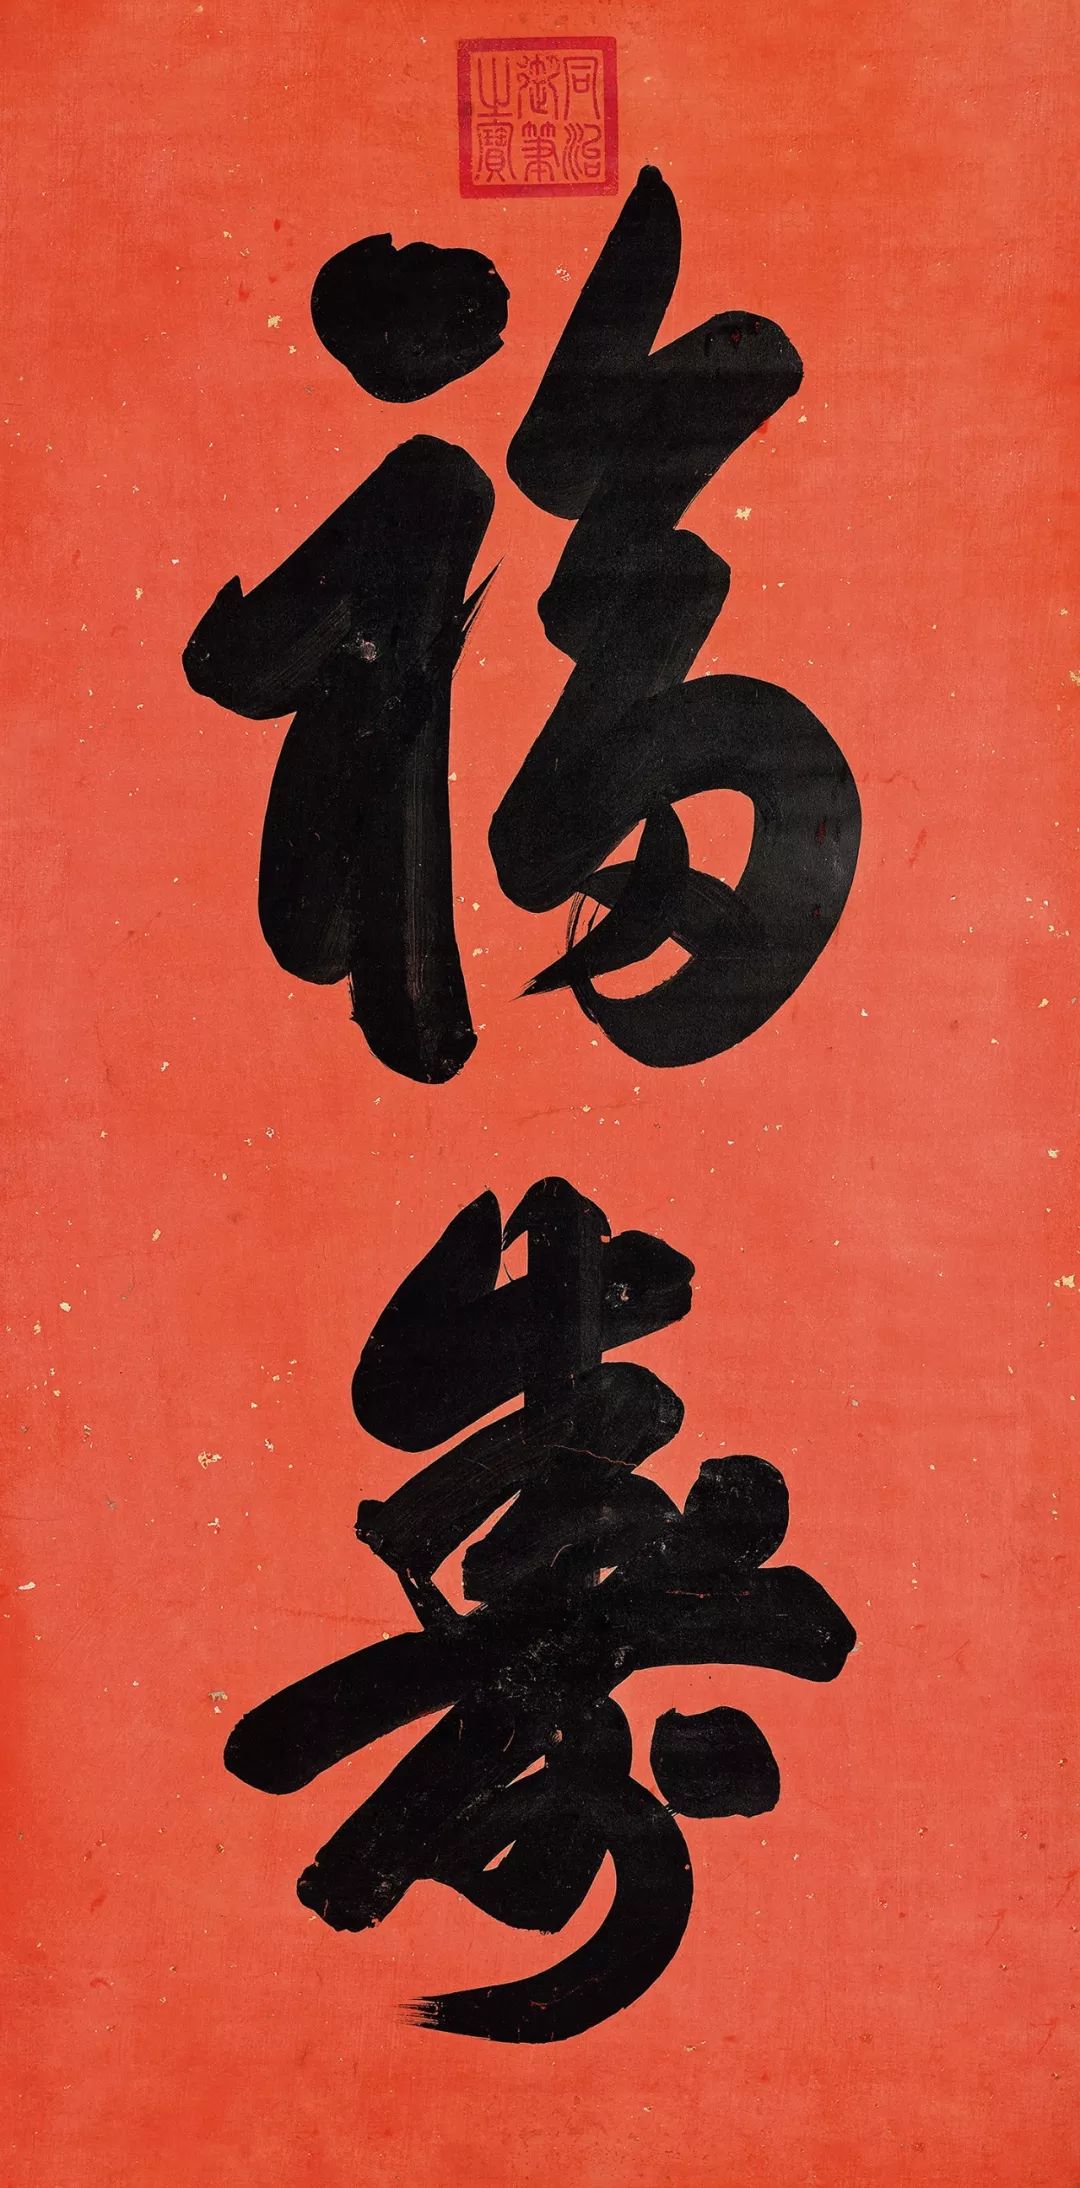 同治
御筆
之寶
福壽